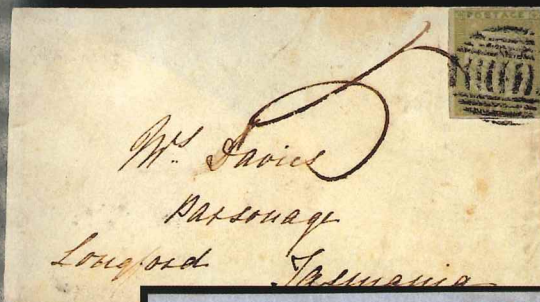 Mrs Davies
Parsonage
Longford Tasmania